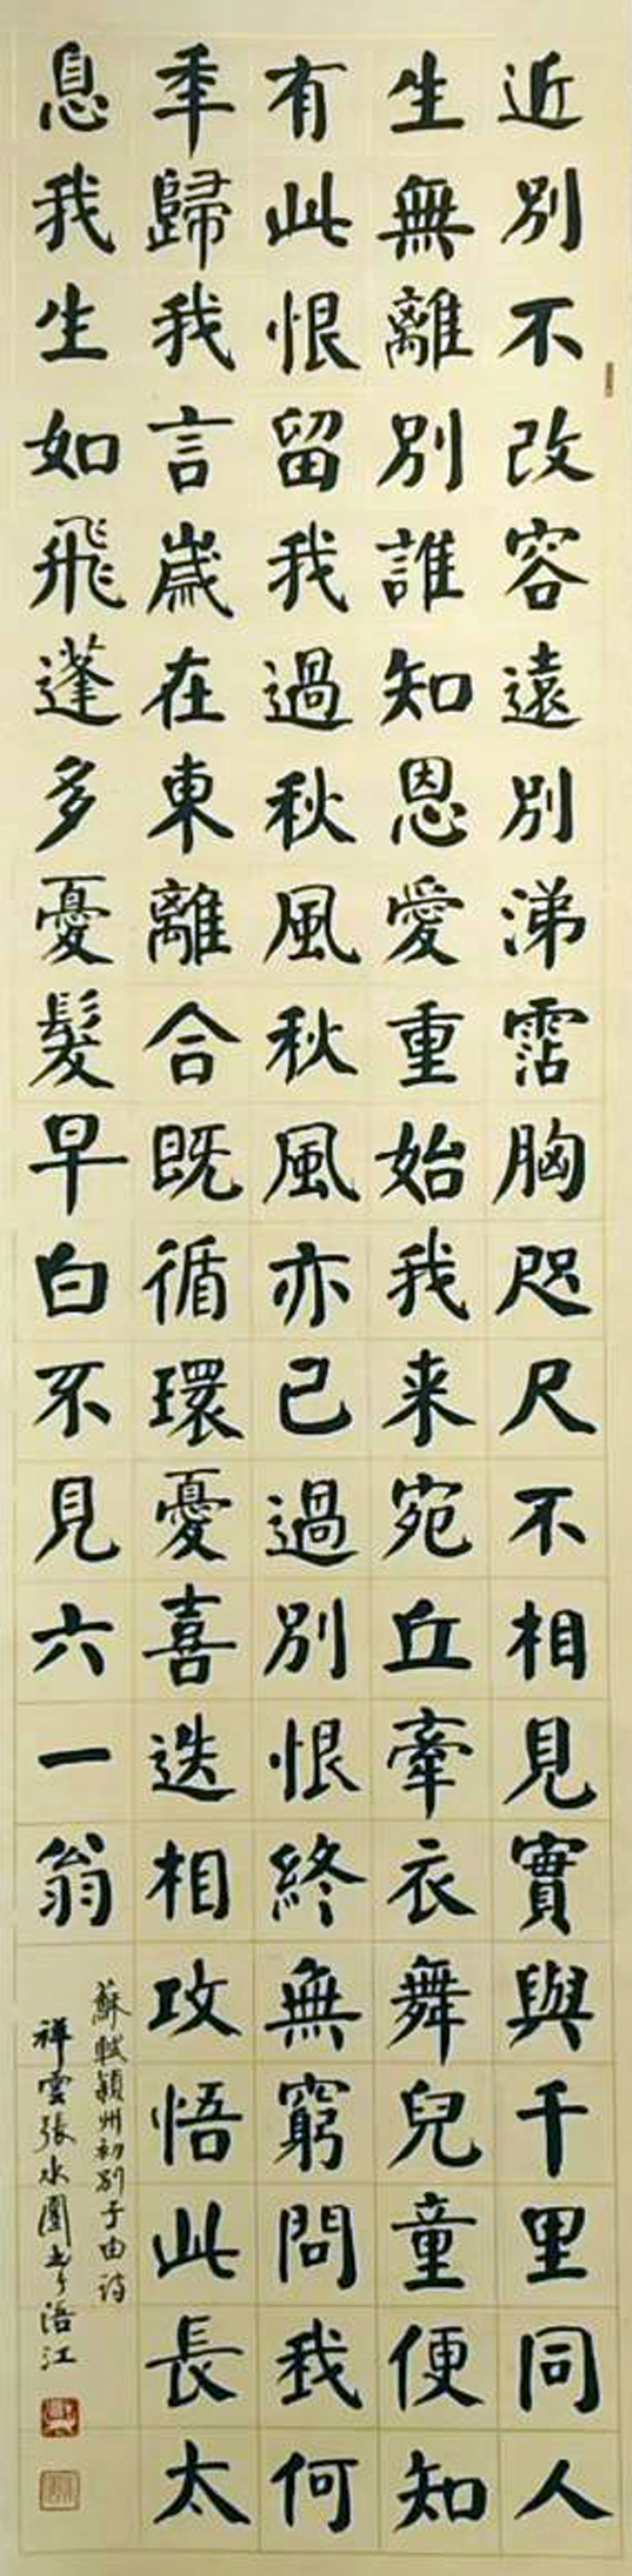 近別不改容遠別涕霑胸咫尺不相見實與千里同人
生無離別誰知恩愛重始我来宛丘牽衣舞兒童便知
有此恨留我過秋風秋風亦已過別恨終無窮問我何
年歸我言歲在東離合既循環憂喜迭相攻悟此長太
息我生如飛蓬多憂髮早白不見六一翁
蘇軾潁州初別子由詩
祥雲張水團書浯江